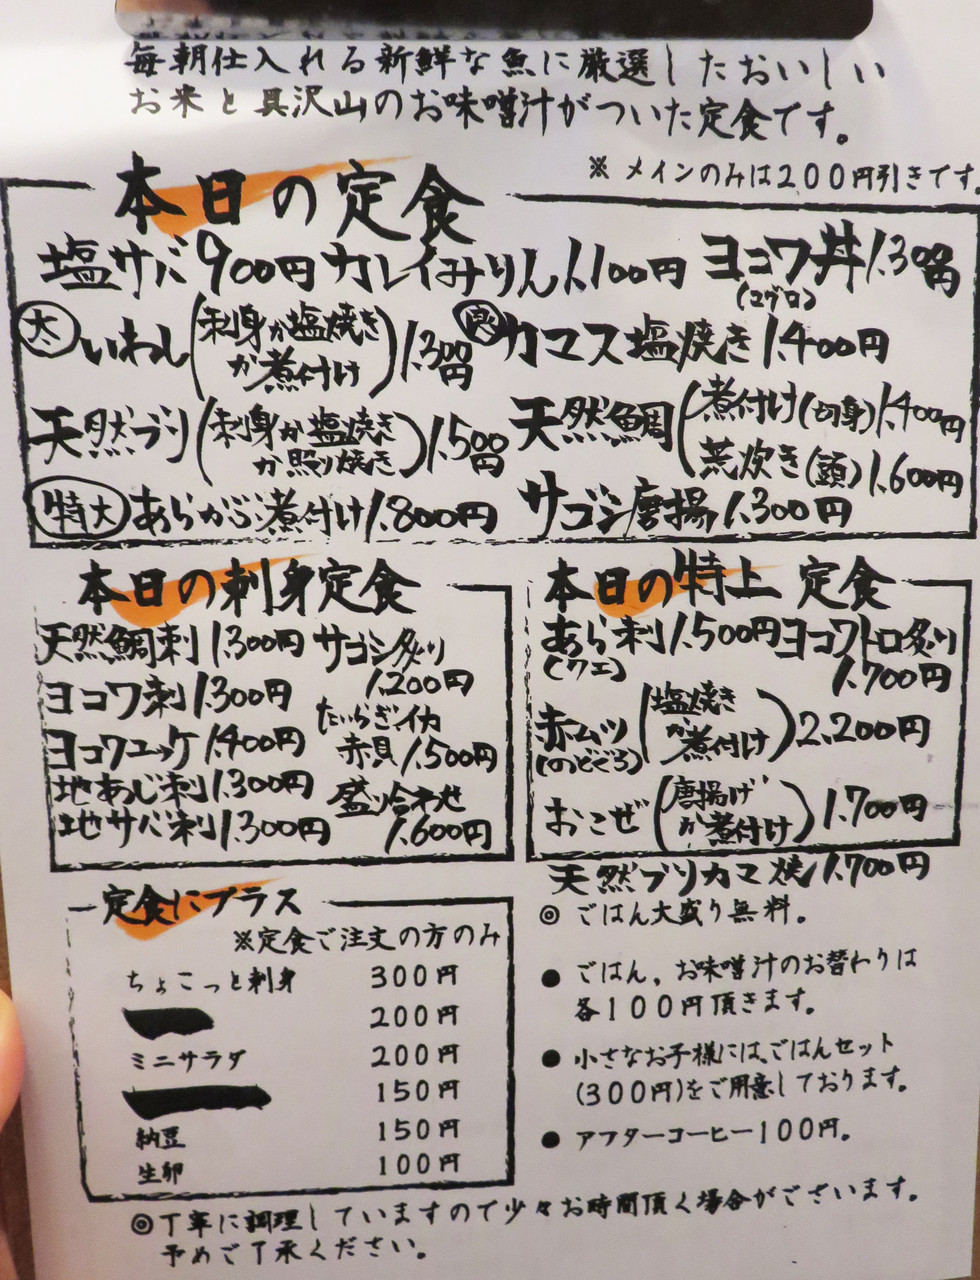 毎朝仕入れる新鮮な魚に厳選したおいしい
お米と具沢山のお味噌汁がついた定食です。
※メインのみは200円引きです
本日の定食
塩サバ900円 カレイみりん1.100円 ヨコワ丼1.300円
(マグロ)
大 いわし(刺身か塩焼きか煮付け)1.300円 カマス塩焼き1.400円
天然ブリ(刺身か塩焼きか照り焼き)1.500円 天然鯛(煮付け(切身)1.400円
荒炊き(頭)1.600円
特大 あらかぶ煮付け1.800円 サゴシ唐揚1.300円
本日の刺身定食
天然鯛刺1.300円
ヨコワ刺1.300円
ヨコワユッケ1.400円
地あじ刺1.300円
地サバ刺1.300円
サゴシ炙り
1.200円
たいらぎ、イカ
赤貝1.500円
盛り合わせ
1.600円
本日の特上定食
あら刺1.500円 ヨコワトロ炙り
(クエ) 1.700円
赤ムツ(塩焼きか煮付け)2.200円
(のどぐろ)
おこぜ(唐揚げか煮付け)1.700円
天然ブリカマ焼1.700円
定食にプラス
※定食ご注文の方のみ
ちょこっと刺身 300円
200円
ミニサラダ 200円
150円
納豆 150円
生卵 100円
◎ごはん大盛り無料。
●ごはん。お味噌汁のお替わりは
各100円頂きます。
●小さなお子様には、ごはんセット
(300円)をご用意しております。
●アフターコーヒー100円。
◎丁寧に調理していますので少々お時間頂く場合がございます。
予めご了承ください。